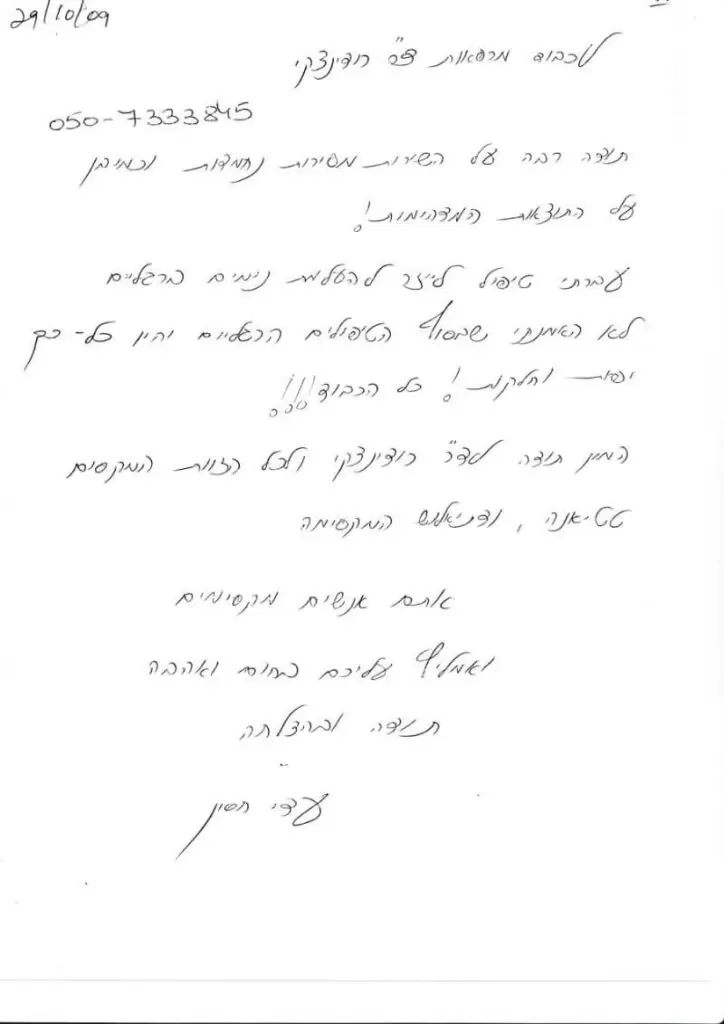 29/10/09
לכבוד מרפאות ד"ר רודינצקי
050-7333845
תודה רבה על השירות מסירות נחמדות וכמובן
על התוצאות המדהימות!
עברתי טיפול לייזר להעלמת נימים ברגליים
לא האמנתי שבסוף הטיפולים הרגליים יהיו כל-כך
יפות וחלקות! כל הכבוד!!!
המון תודה לד"ר רודינצקי ולכל הצוות המקסים
טטיאנה, המקסימה
אתם אנשים מקסימים
ואמליץ עליכם בחום ואהבה
תודה ובהצלחה
עדי חסון